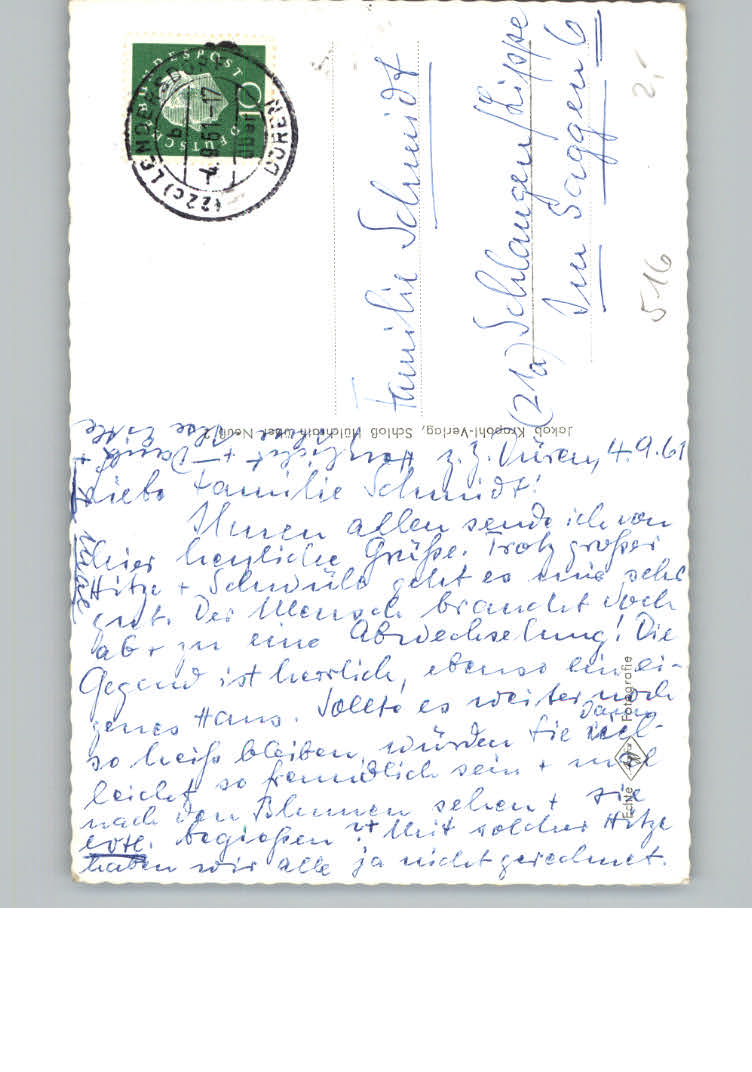 z. Z. Düren, 4.9.61
Liebe Familie Schmidt!
Ihnen allen sende ich von
hier herzliche Grüße. Trotz großer
Hitze + Schwüle geht es mir sehr
gut. Der Mensch braucht doch
ab + zu eine Abwechselung! Die
Gegend ist herrlich, ebenso ein ei-
genes Haus. Sollte es weiter noch
so heiß bleiben, würden Sie dann viel-
leicht so freundlich sein + mal
nach den Blumen sehen + sie
evtl. begießen? Mit solcher Hitze
haben wir alle ja nicht gerechnet.
Herzlichst + Dank +
Familie Schmidt
(21a) Schlangen/Lippe
Im Saggen 6
DEUTSCHE BUNDESPOST
10
(22c)
über
DÜREN
b
4.9.61-17
Jakob Krapohl-Verlag, Schloß Hülchrath über Neuß 2
Echte Fotografie
516
2,-